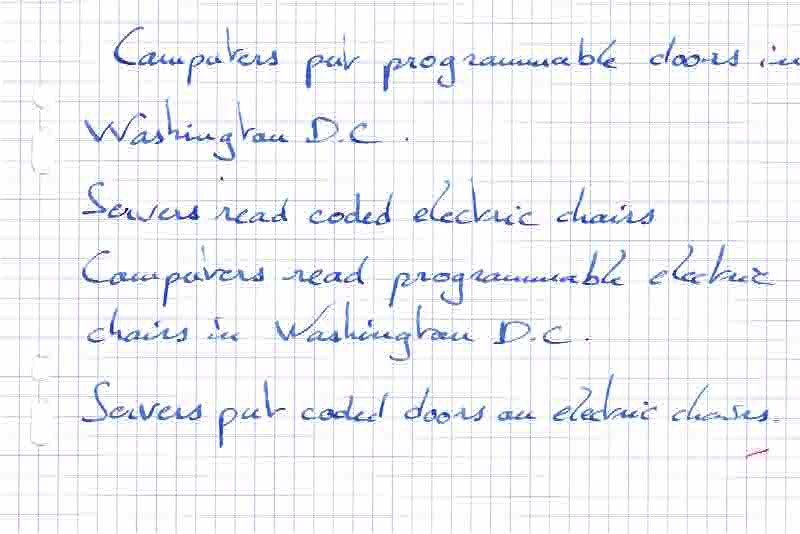 Computers put programmable doors in
Washington D.C.
Servers read coded electric chairs
Computers read programmable electric
chairs in Washington D.C.
Servers put coded doors on electric chairs.